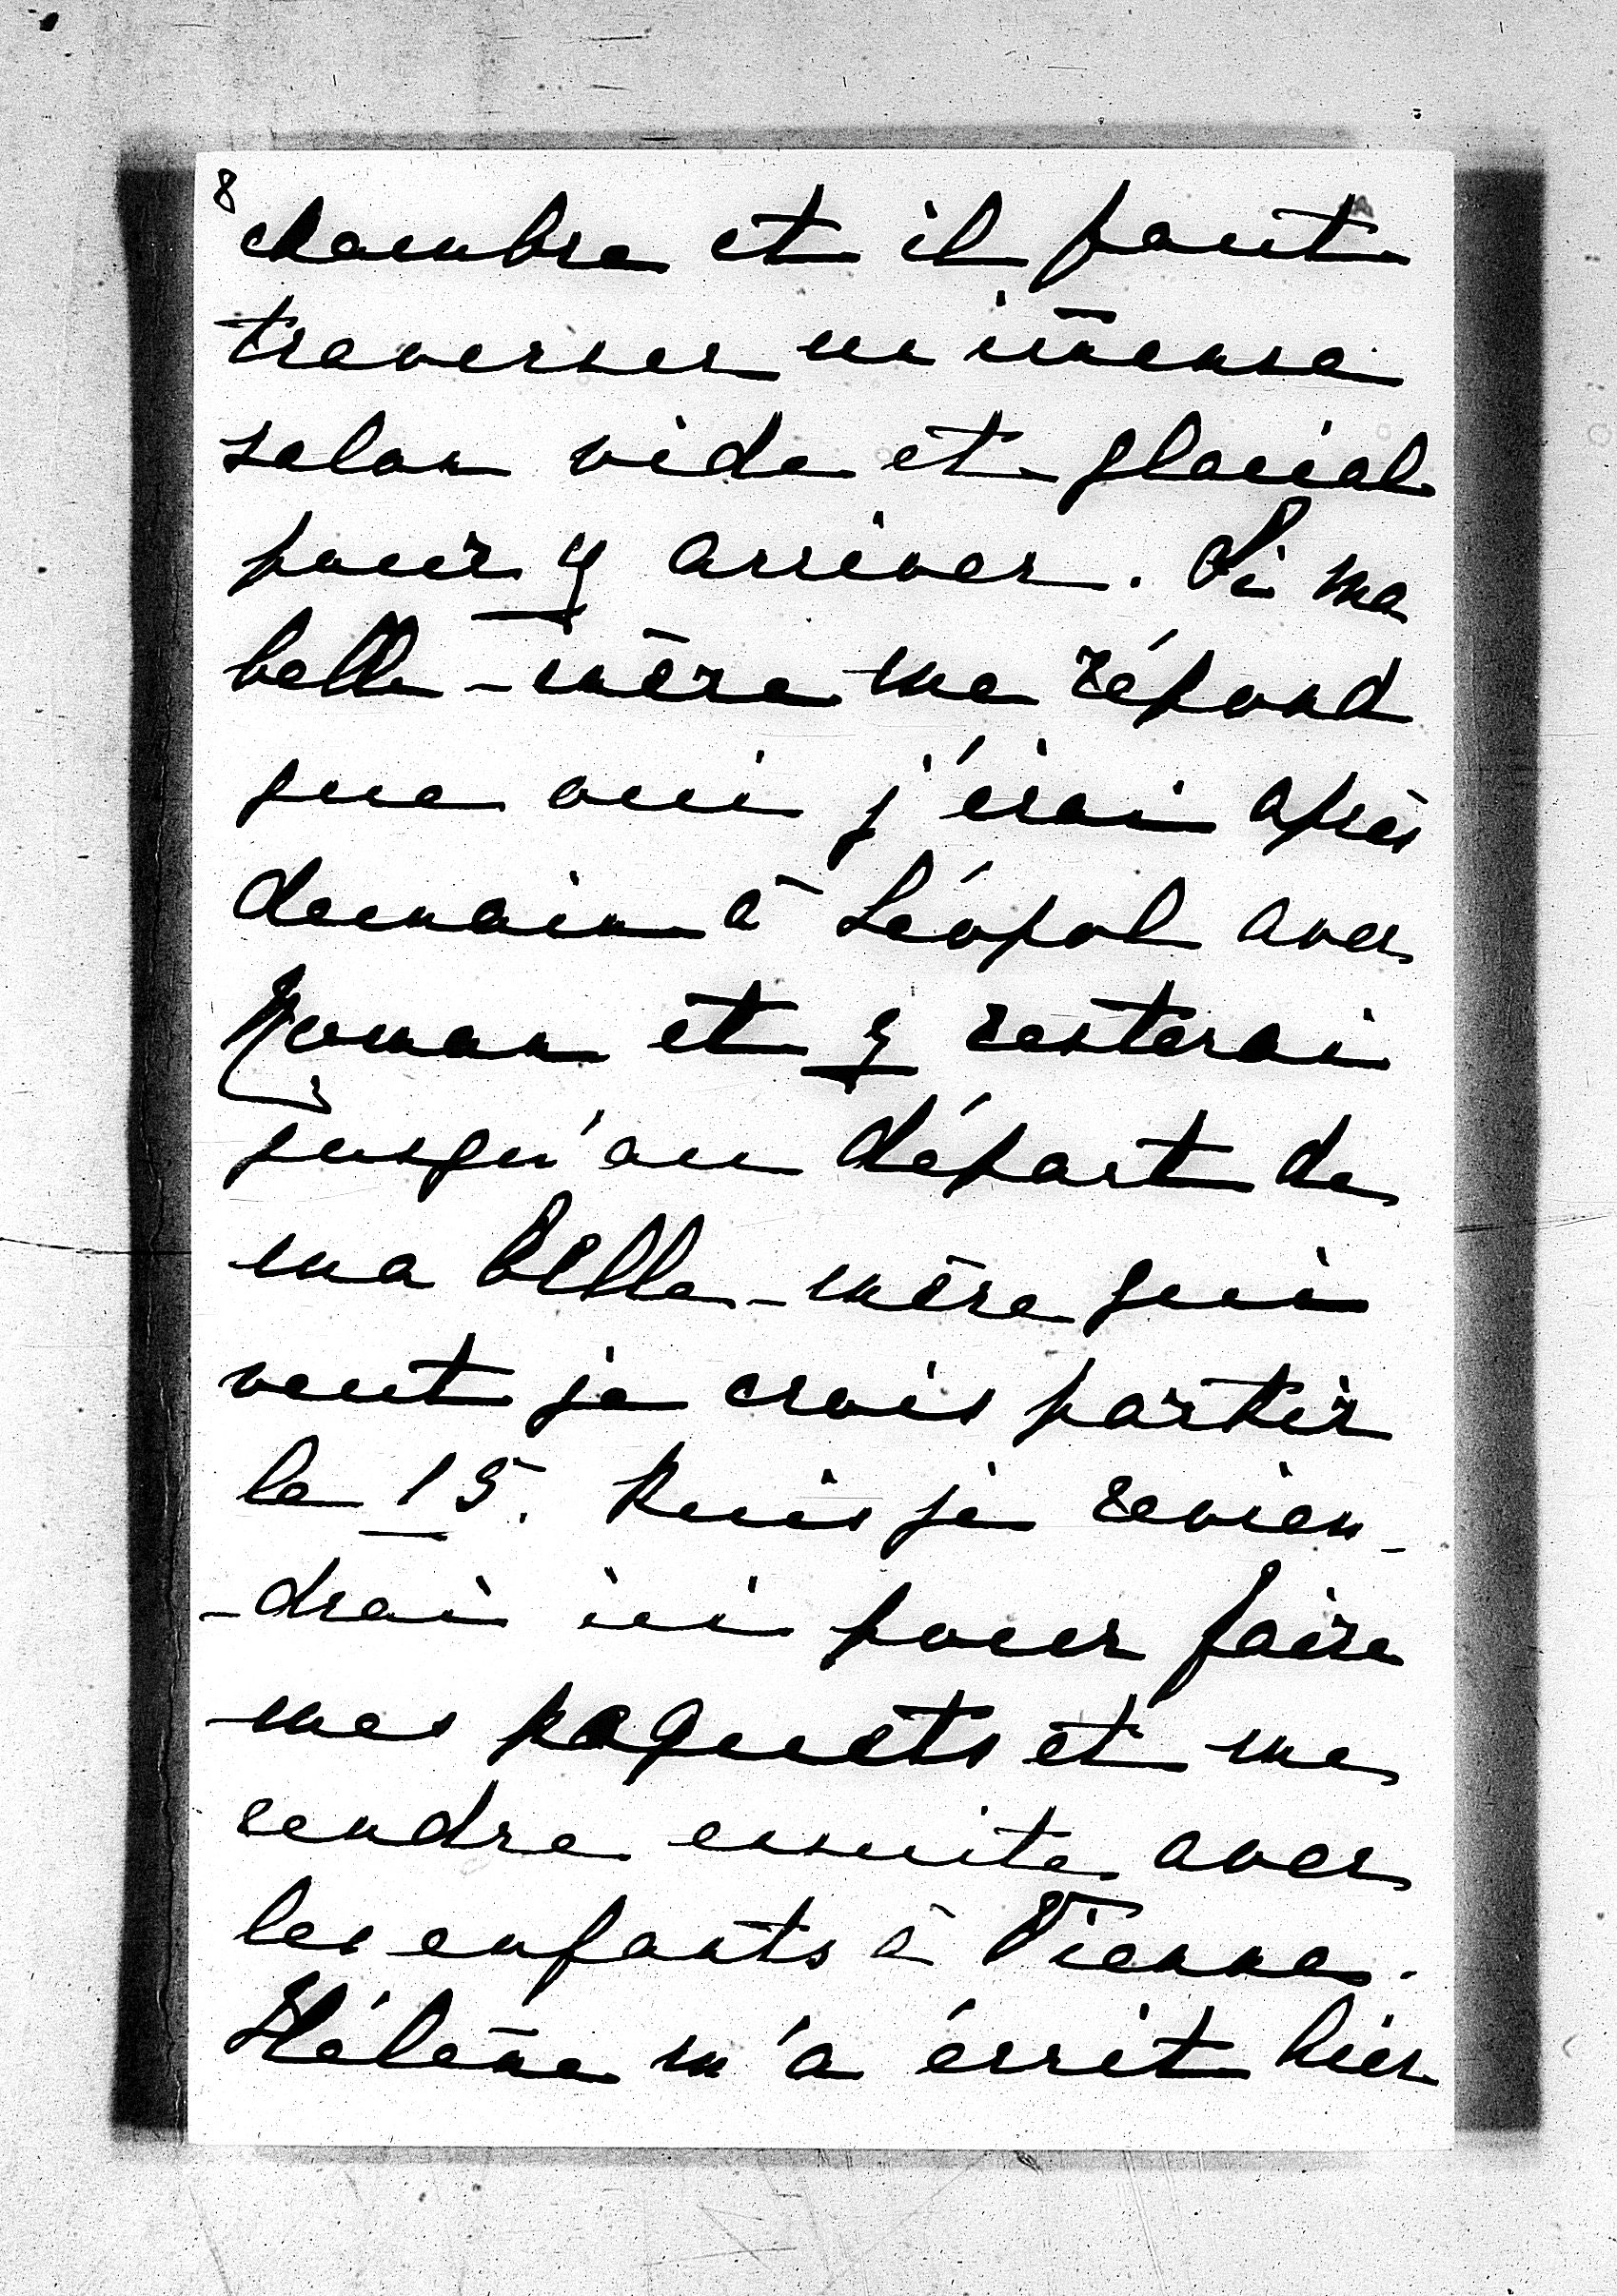 8
chambre et il faut
traverser un im̄ense
salon vide et glacial
pour y arriver. Si ma
belle-mère me répond
que oui j'irai après
demain à Léopol avec
Roman et y resterai
jusqu'au départ de
ma belle-mère qui
veut je crois partir
le 15. Puis je revien-
-drai ici pour faire
mes paquets et me
rendre ensuite avec
les enfants à Vienne.
Hélène m'a écrit hier